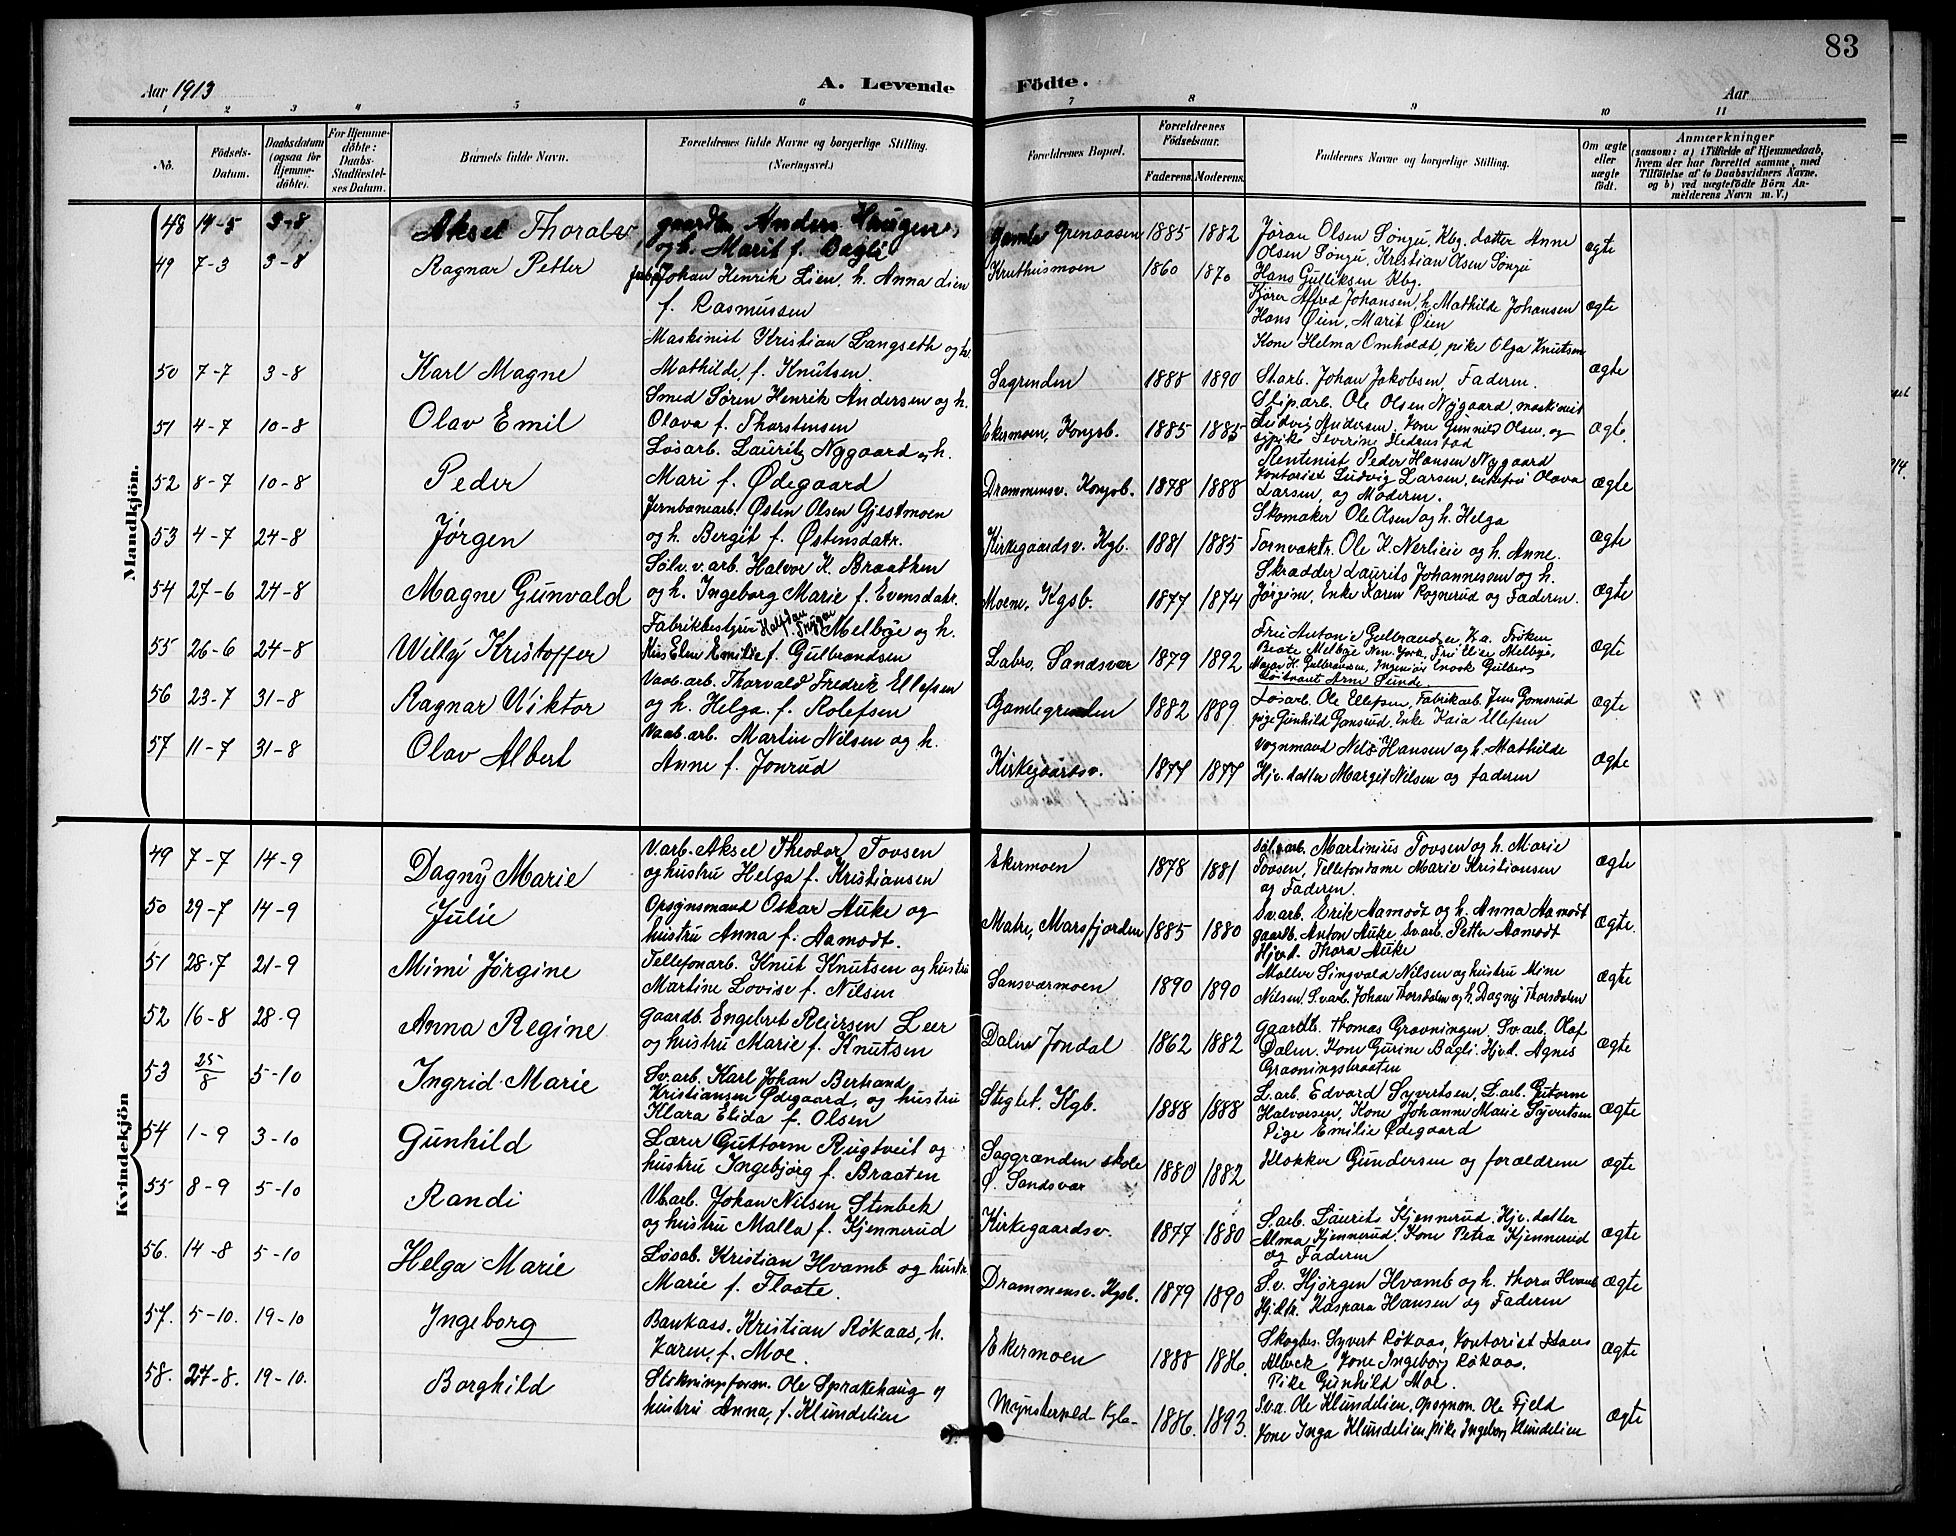 83
Aar 1913
A. Levende Födte.
Aar
1 2 3 4 5 6 7 8 9 10 11
Nö.
Födsels-Datum.
Daabsdatum (ogsaa for Hjemmedöbte).
For Hjemmedöbte: Daabs-Stadfæstelses Datum.
Barnets fulde Navn.
Forældrenes fulde Navne og borgerlige Stilling. (Næringsvei.)
Forældrenes Bopæl.
Forældrenes Födselsaar.
Faderens. Moderens.
Faddernes Navne og borgerlige Stilling.
Om ægte eller uægte födt.
Anmærkninger (saasom: a) i Tilfælde af Hjemmedaab, hvem der har forrettet samme, med Tilföielse af to Daabsvidners Navne, og b) ved uægtefödte Börn Anmelderens Navn m. V.)
Mandkjön.
48 14-5 3-8 Aksel Thoralv
gaardbr. Anders Haugen
og h. Marit f. Bagli
Gamle Grenaasen 1885 1882
Jøran Olsen Søngu, Kbg. datter Anne
Olsen Søngu, Kristian Olsen Søngu
Hans Gulliksen Kbg.
ægte
49 7-3 3-8 Ragnar Petter
Johan Henrik Lien, h. Anna Lien
f. Rasmussen
Kruthusmoen 1860 1870
Kjører Alfred Johansen, h. Mathilde Johansen
Hans Øien, Marit Øien
ægte
50 7-7 3-8 Karl Magne
Maskinist Kristian Langseth og h.
Mathilde, f. Knutsen.
Sagrenden 1888 1890
Kone Helma Omholdt, pike Olga Knutsen
St.arb. Johan Jakobsen, Faderen.
ægte
51 4-7 10-8 Olav Emil
Smed Søren Henrik Andersen og h.
Olava f. Thorstensen
Ekermoen, Kongsb. 1885 1885
Stip.arb. Ole Olsen Nygaard, maskinist
Ludvig Andersen, Kone Gunnild Olsen, og
pike Severine Hedenstad
ægte.
52 8-7 10-8 Peder
Løsarb. Lauritz Nygaard og h.
Mari f. Ødegaard
Drammensv. Kongsb. 1878 1888
Rentenist Peder Hansen Nygaard
Kontorist Ludvig Larsen, enkefru Olava
Larsen, og Moderen.
ægte
53 4-7 24-8 Jørgen
Jernbanearb. Østen Olsen Gjestmoen
og h. Bergit f. Østensdatr.
Kirkegaardsv. Kgb. 1881 1885
Skomaker Ole Olsen og h. Helga
Tornvaktr. Ole K. Nerlieie og h. Anne.
ægte
54 27-6 24-8 Magne Gunvald
Sölv.v.arb. Halvor K. Braathen
og h. Ingeborg Marie f. Evensdatr.
Moene, Kgsb. 1877 1874
Skrædder Laurits Johannessen og h.
Jørgine, Enke Karen Rognerud og Faderen.
ægte
55 26-6 24-8 Willy Kristoffer
Fabrikbestyrer Halfdan Trygve Melbye og h.
Elen Emilie f. Gulbrandsen
Labro, Sandsvær 1879 1892
Fru Antonie Gulbrandsen, Frøken
Beate Melbye New York, Fru Elise Melbye,
Major H. Gulbrandsen, Ingeniør Enock Gulbrs
Löitnant Arne Sunde.
ægte
56 23-7 31-8 Ragnar Viktor
Vaab.arb. Thorvald Fredrik Ellefsen
og h. Helga. f. Rolefsen
Gamlegrenden 1882 1889
Løsarb. Ole Ellefsen, Fabrikarb. Jens Gomsrud
pige Gunhild Gomsrud, Enke Kaia Ellefsen
ægte
57 11-7 31-8 Olav Albert
Vaab.arb. Martin Nilsen og h.
Anne f. Jonrud
Kirkegaardsv. 1877 1877
Vognmand Nels Hansen og h. Mathilde
Hjv. datter Margit Nilsen og faderen
ægte
Kvindekjön
49 7-7 14-9 Dagny Marie
V.arb. Aksel Theodor Tovsen
og hustru Helga f. Kristiansen
Ekermoen 1878 1881
Sølv.arb. Martinius Tovsen og h. Marie
Tovsen, Tellefondame Marie Kristiansen
og Faderen.
ægte
50 29-7 14-9 Julie
Opsynsmand Oskar Auke og
hustru Anna f. Aamodt.
Matre, Marsfjorden 1885 1880
Sv.arb. Erik Aamodt og h. Anna Aamodt
gaardb. Anton Auke Sv.arb. Petter Aamodt
Hjv.d. Thora Auke
ægte.
51 28-7 21-9 Mimi Jørgine
Tellefonarb. Knut Knutsen og hustru
Martine Lovise f. Nilsen
Sansværmoen 1890 1890
Møller Singvald Nilsen og hustru Mine
Nilsen, S.varb. Johan Thorsdalen og h. Dagny Thorsdalen
ægte
52 16-8 28-9 Anna Regine
Gaardb. Engebret Reiersen Leer
og hustru Marie f. Knutsen
Dalen Jondal 1862 1882
Gaardb. Thomas Gravningen, Sv.arb. Olaf
Dalen. Kone Gurine Bagli. Hjv.d. Agnes
Gravningsbraaten
ægte
53 25/8 5-10 Ingrid Marie
Sv.arb. Karl Johan Bertrand
Kristiansen Ødegaard, og hustru
Klara Elida f. Olsen
Steglet. Kgb. 1888 1888
L.arb. Edvard Syvertsen, L.arb. Gutorm
Halvorsen, Kone Johanne Marie Syvertsen
Pige Emilie Ødegaard
ægte
54 1-9 3-10 Gunhild
Lærer Guttorm Rugtveit og
hustru Ingebjørg f. Braaten
Saggrænden skole
Ø. Sandsvær
1880 1882
Klokker Gundersen og forældrene
ægte
55 8-9 5-10 Randi
Vb.arb. Johan Nilsen Stenbek
og hustru Malla f. Kjennerud
Kirkegaardsv. 1877 1880
S.arb. Laurits Kjennerud. Hjv. datter
Alma Kjennerud, Kone Petra Kjennerud
og Faderen
ægte
56. 14-8 5-10 Helga Marie
Løsab. Kristian Hvamb og hustr.
Marie f. Floate.
Drammensv. Kgsb. 1879 1890
S.v. Hjørgen Hvamb og h. Thora Hvamb
Hj.dtr. Kaspara Hansen og Faderen
ægte
57. 5-10. 19-10 Ingeborg
Bankass. Kristian Røkaas, h.
Karen, f. Moe.
Ekermoen 1888 1886.
Skogbr. Syvert Røkaas, Kontorist Hans
Albeck, Kone Ingeborg Røkaas.
Pike Gunhild Moe.
ægte
58. 27-8. 19-10. Borghild
Stikningsform. Ole Sprakehaug og
hustru Anna, f. Klundelien
Mynsterpld. Kgb. 1886. 1893.
Sv.a. Ole Klundelien, Opsynsm. Ole Fjeld
Kone Inga Klundelien, Pike Ingeborg Klundelien
ægte